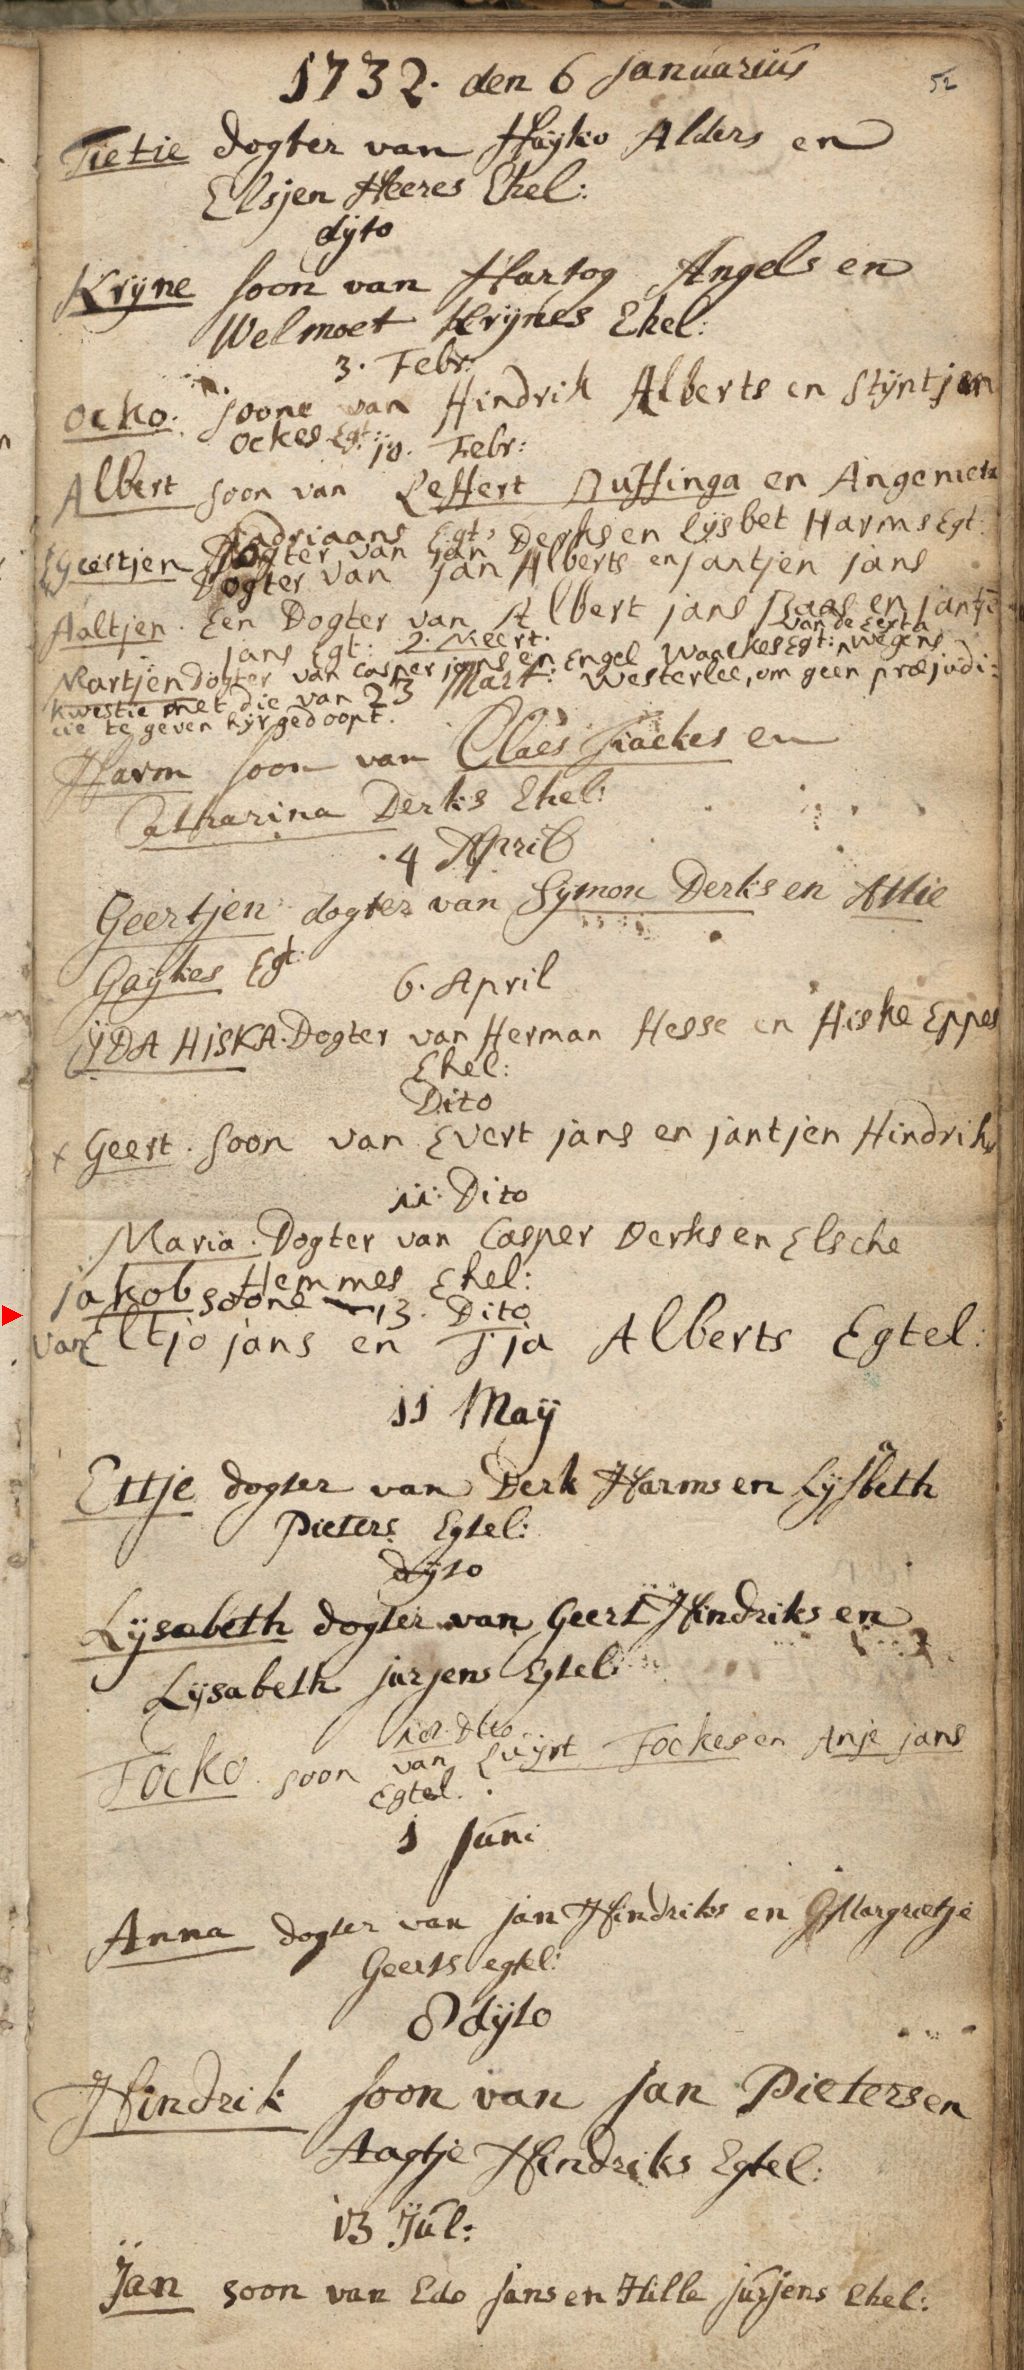 52
1732. den 6 januarius
Tietie dogter van Hayko Alders en
Elsjen Heeres Ehel:
dyto
Kryne soon van Hartog Angels en
Welmoet Krynes Ehel:
3. Febr:
Ocko. soone van Hindrik Alberts en Stijntjen
Ockes Egt:
10. Febr:
Albert soon van Leffert Buffinga en Angenieta
Adriaans Egt:
Dogter van Jan Derks en Lijsbet Harms Egt:
Geertjen Dogter van Jan Alberts en Jantjen Jans
Aaltjen. Een Dogter van Albert jans Baas en jantje
jans Egt: 2. Meert.
van de Eexta
Martjen Dogter van Casper jans en Engel Waalkes Egt: wegens
kwestie met die van Westerlee, om geen præjudi-
23 Mart:
cie te geven hijr gedoopt.
Harm soon van Claes Fiackes en
Catharina Derks Ehel:
4 April
Geertjen dogter van Symon Derks en Attie
Gaykes Egt:
6. April
YDA HISKA. Dogter van Herman Hesse en Hiske Eppes
Ehel:
Dito
x Geert. soon van Evert jans en jantjen Hindriks
11: Dito
Maria. Dogter van Casper Derks en Elsche
Hemmes Ehel:
jakob soone 13. Dito
van Eltjo jans en Tja Alberts Egtel:
11 May
Ettje dogter van Derk Harms en Lysbeth
a
Pieters Egtel:
dyto
Lysabeth dogter van Geert Hindriks en
Lysabeth jurjens Egtel:
18. dito
Focko. soon van Luijrt Fockes en Anje jans
Egtel.
1 Juni
Anna dogter van jan Hindriks en Margrietje
Geerts egtel:
8 dyto
Hindrik soon van Jan Pieters en
Aagtje Hindriks Egtel:
13 Jul:
Jan soon van Edo Jans en Hille jurjens Ehel: